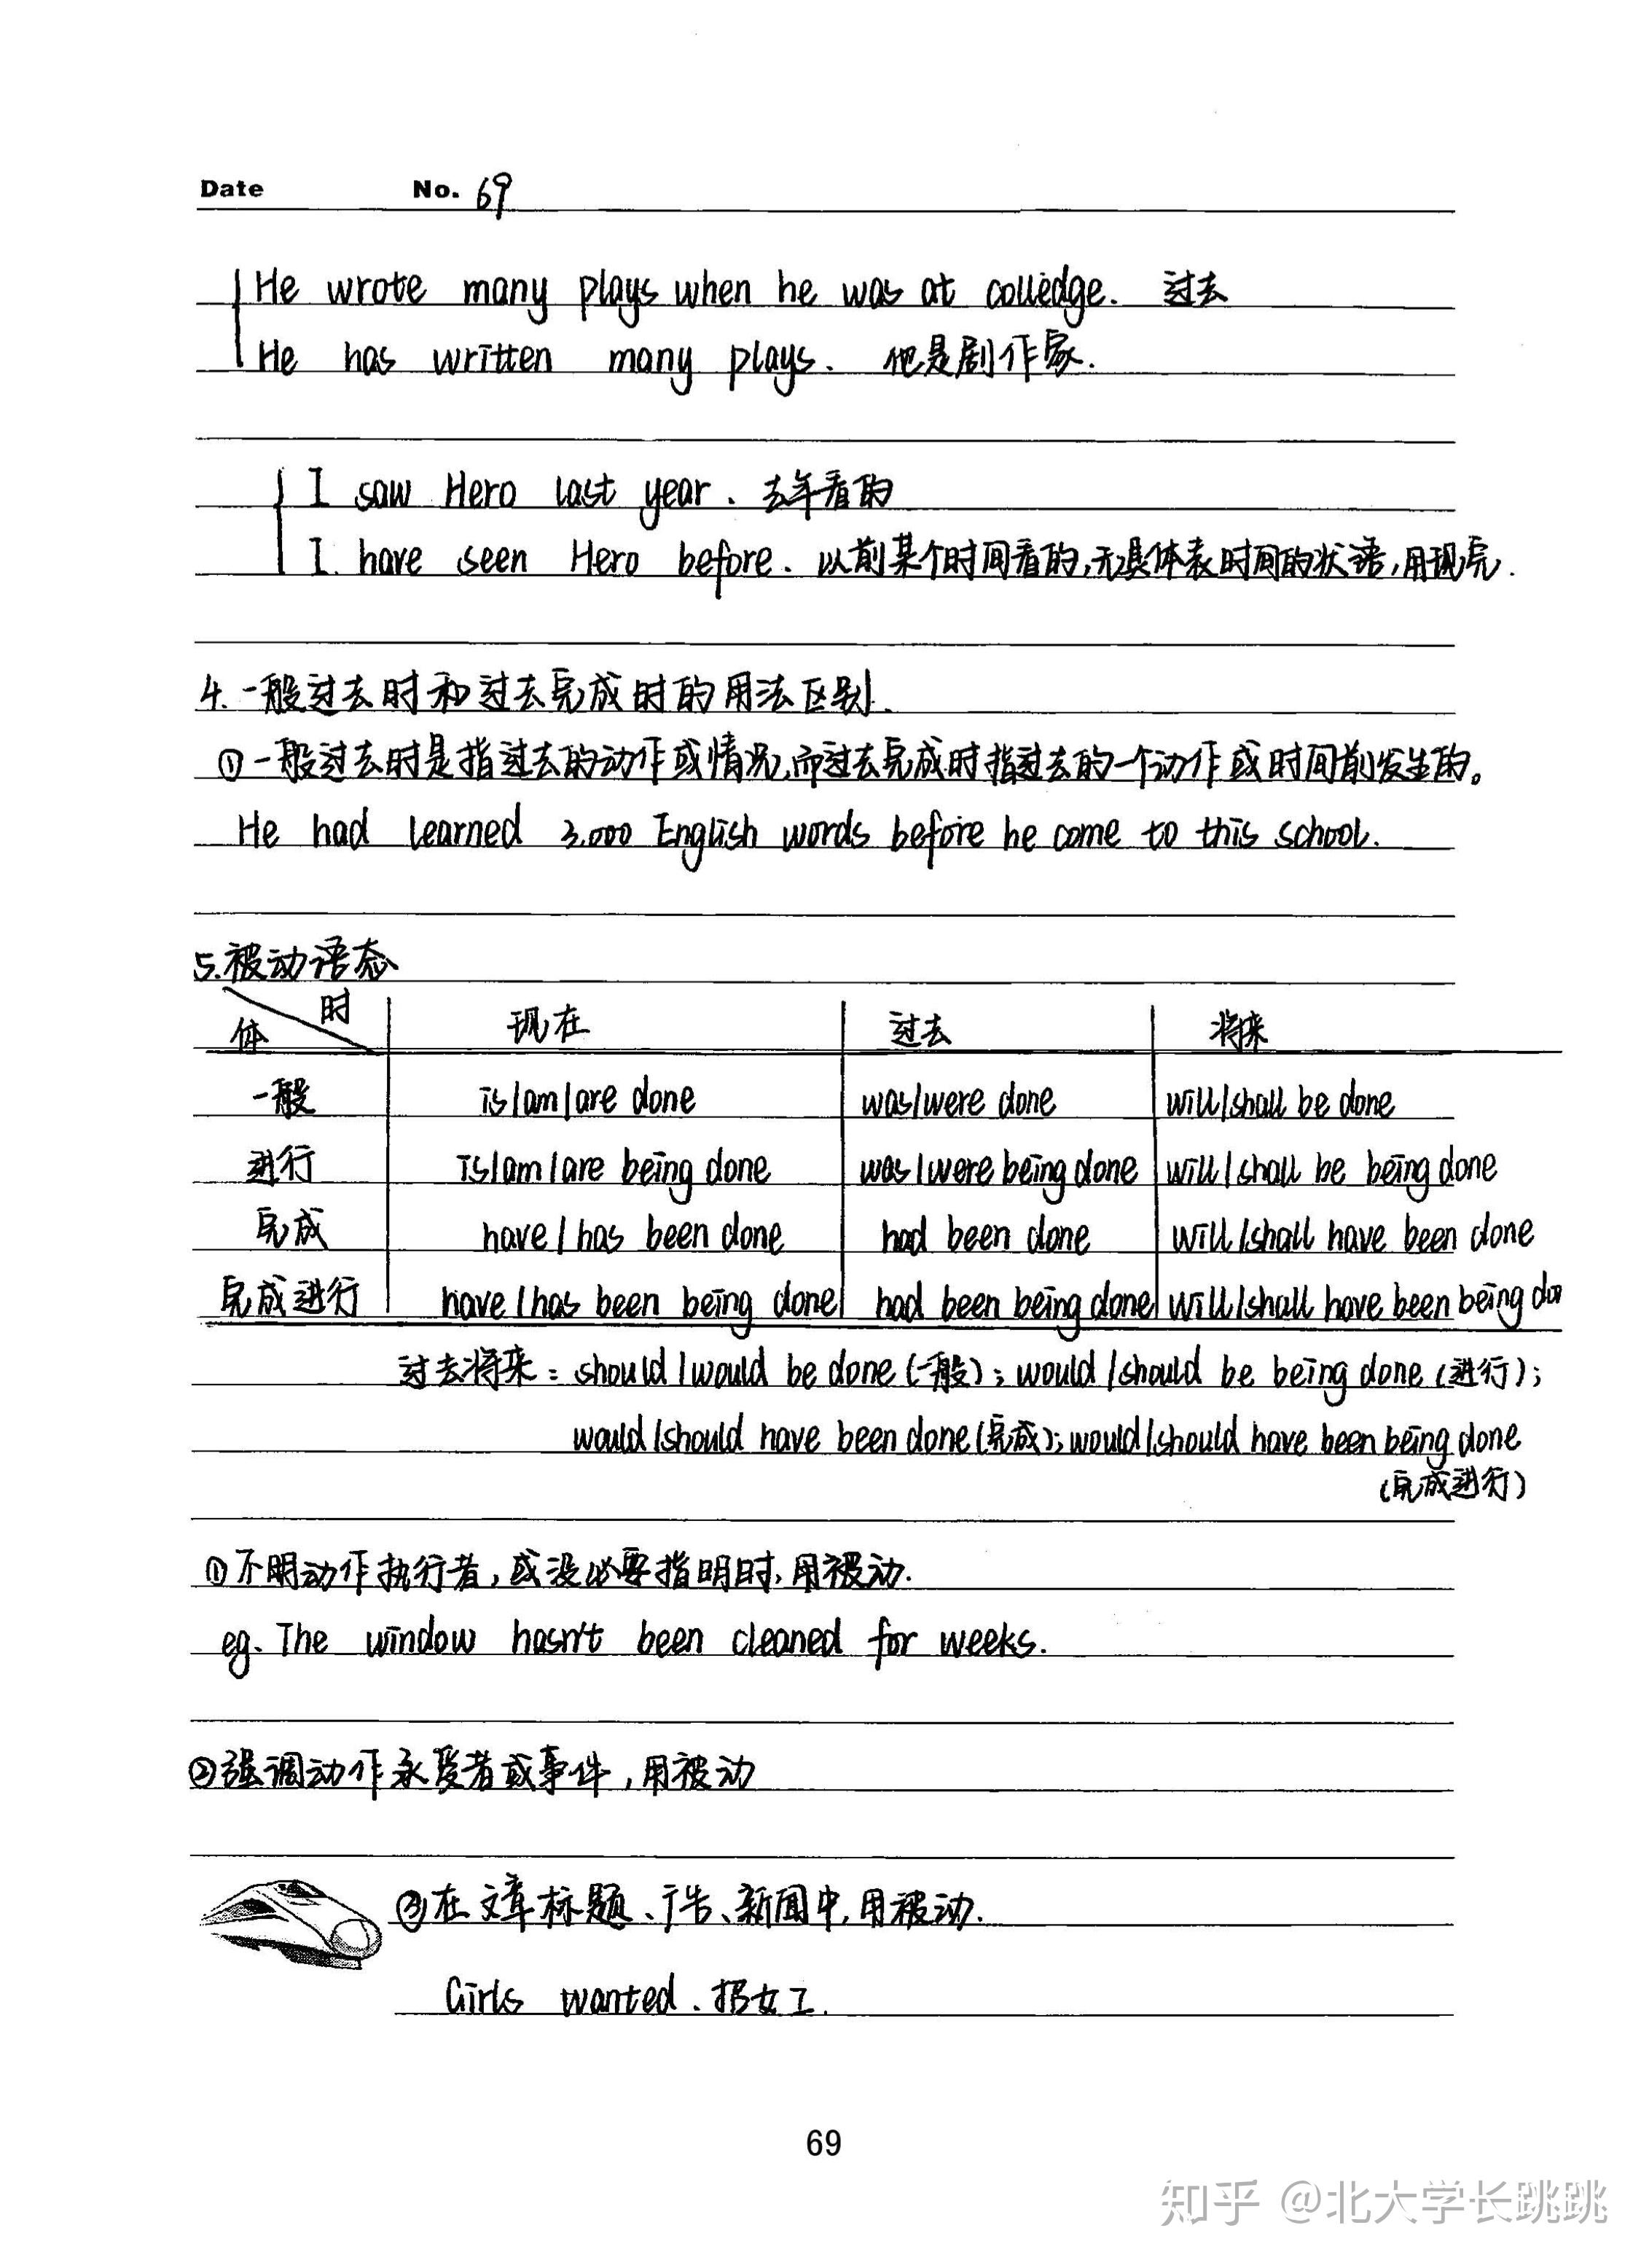 Date No. 69
He wrote many plays when he was at colledge. 过去
He has written many plays. 他是剧作家.
I saw Hero last year. 去年看的
I have seen Hero before. 以前某个时间看的,无具体表时间的状语,用现完.
4. 一般过去时和过去完成时的用法区别.
①一般过去时是指过去的动作或情况,而过去完成时指过去的一个动作或时间前发生的。
He had learned 3,000 English words before he come to this school.
5.被动语态
体 时 现在 过去 将来
一般 is/am/are done was/were done will/shall be done
进行 is/am/are being done was/were being done will/shall be being done
完成 have/has been done had been done will/shall have been done
完成进行 have/has been being done had been being done will/shall have been being don
过去将来: should/would be done (一般); would/should be being done (进行);
would/should have been done (完成); would/should have been being done
(完成进行)
①不明动作执行者,或没必要指明时,用被动.
eg. The window hasn't been cleaned for weeks.
②强调动作承受者或事件,用被动
③在文章标题、广告、新闻中,用被动.
Girls wanted. 招女工.
69
知乎 @北大学长跳跳